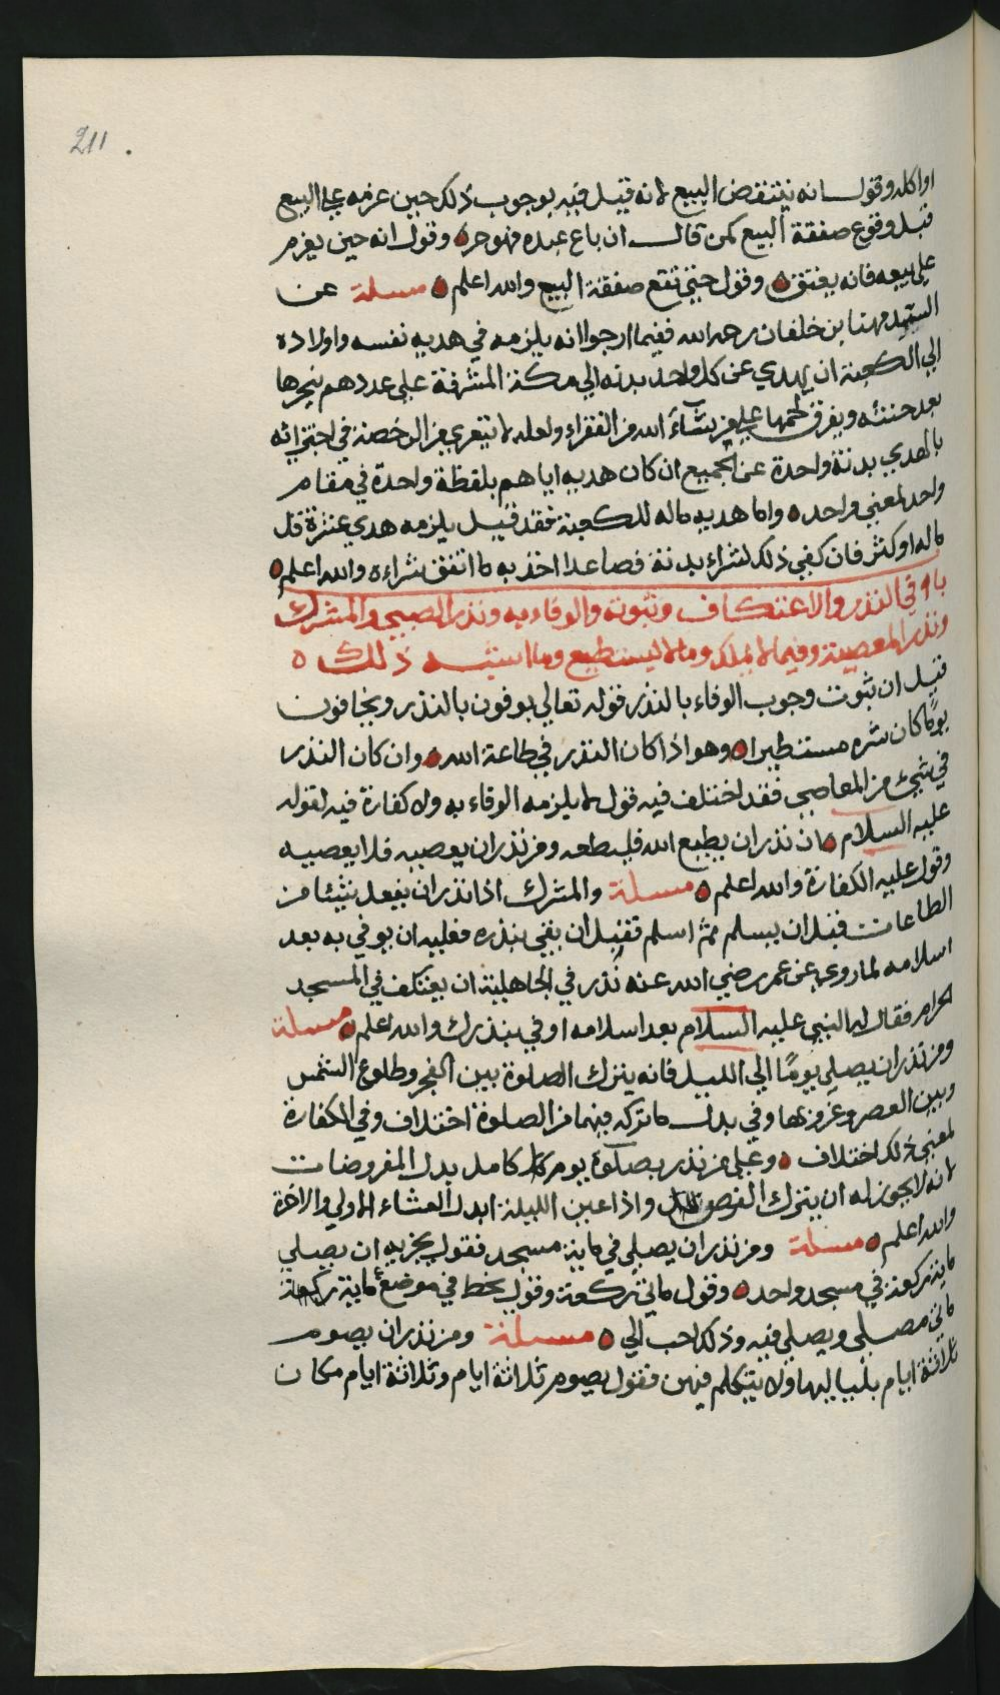 211
او اكله وقول انه ينتقض البيع لانه قيل فيه بوجوب ذلك حين عزمه علي البيع
قبل وقوع صفقة البيع كمن قال ان باع عبده فهو حر وقول انه حين يعزم
علي بيعه فانه يعتق وقول حتي تقع صفقة البيع والله اعلم مسلة عن
السيد مهنا بن خلفان رحمه الله ففيما ارجوا انه يلزمه في هديه نفسه واولاده
الي الكعبة ان يهدي عن كل واحد بدنه الي مكة المشرفة علي عددهم ينحرها
بعد حنثه ويفرق لحمها علي من يشاء الله من الفقراء ولعله لا يتعري من الرخصة في اجتزائه
بالهدي بدنة واحدة عن الجميع ان كان هديه اياهم بلفظة واحدة في مقام
واحد لمعني واحد واما هديه ماله للكعبة فقد قيل يلزمه هدي عشرة قل
ماله او كثر فان كفي ذلك لشراء بدنة فصاعدا اخذ به ما اتفق شراءه والله اعلم
باب في النذر والاعتكاف وثبوته والوفاء به ونذر الصبي والمشرك
ونذر المعصية وفيما لا يملك وما لا ليستطيع وما اشبه ذلك
قيل ان ثبوت وجوب الوفاء بالنذر قوله تعالي يوفون بالنذر ويخافون
يومًا كان شره مستطيرا وهو اذا كان النذر في طاعة الله وان كان النذر
في شيء من المعاصي فقد اختلف فيه قول لا يلزمه الوفاء به ولا كفارة فيه لقوله
عليه السلام من نذر ان يطيع الله فليطعه ومن نذر ان يعصيه فلا يعصيه
وقول عليه الكفارة والله اعلم مسلة والمشرك اذا نذر ان يفعل شيئا من
الطاعات قبل ان يسلم ثم اسلم فقيل ان يفي بنذره فعليه ان يوفي به بعد
اسلامه لما روي عن عمر رضي الله عنه نذر في الجاهلية ان يعتكف في المسجد
الحرام فقال له النبي عليه السلام بعد اسلامه اوفي بنذرك والله اعلم مسلة
ومن نذر ان يصلي يومًا الي الليل فانه يترك الصلوة بين الفجر وطلوع الشمس
وبين العصر وغروبها وفي بدل ما تركه فيهما من الصلوة اختلاف وفي الكفارة
لمعني ذلك اختلاف وعلي من نذر بصلوة يوم كامل بدل المفروضات
لانه لا يجوز له ان يترك الفرض واذا عين الليلة ابدل العشاء الاولي والاخرة
والله اعلم مسلة ومن نذر ان يصلي في ماية مسجد فقول يجزيه ان يصلي
ماية ركعة في مسجد واحد وقول ماتي ركعة وقول يخط في موضع ماية ركعة
ماتي مصلي ويصلي فيه وذلك احب الي مسلة ومن نذر ان يصوم
ثلاثة ايام بلياليها ولا يتكلم فيهن فقول يصوم ثلاثة ايام وثلاثة ايام مكان